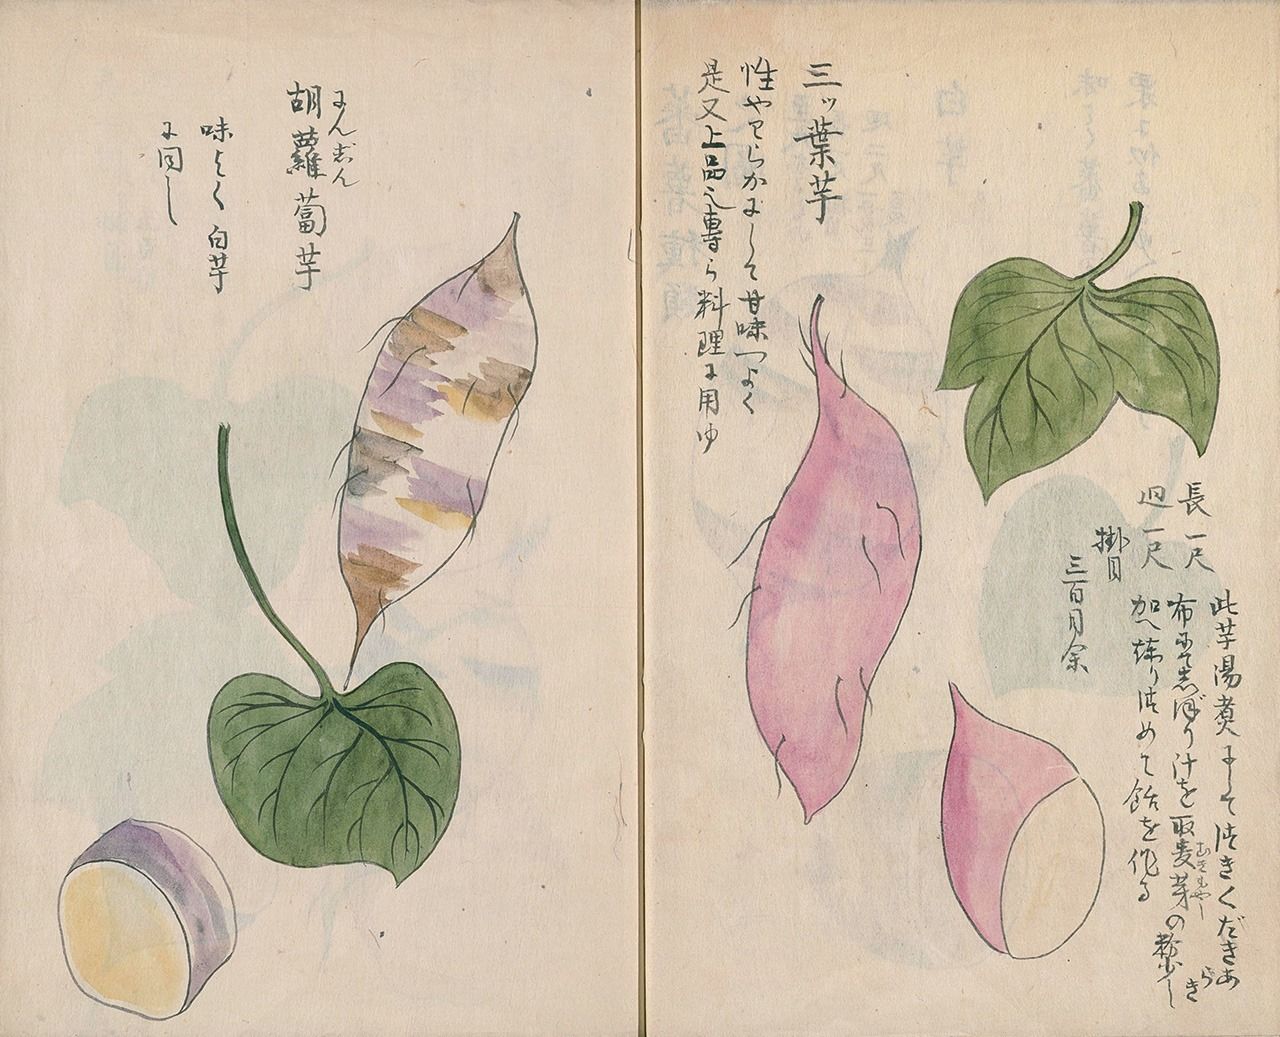 三ッ葉芋
性やわらかにして甘味つよく
是又上品之専ら料理に用ゆ
長一尺
廻一尺
掛目
三百目余
此芋湯煮にして搗きくだきあらき
布にてしぼり汁を取麦芽の粉少し
むぎもやし
加へ煉り詰めて飴を作る
にんじん
胡蘿蔔芋
味よく白芋
に同し